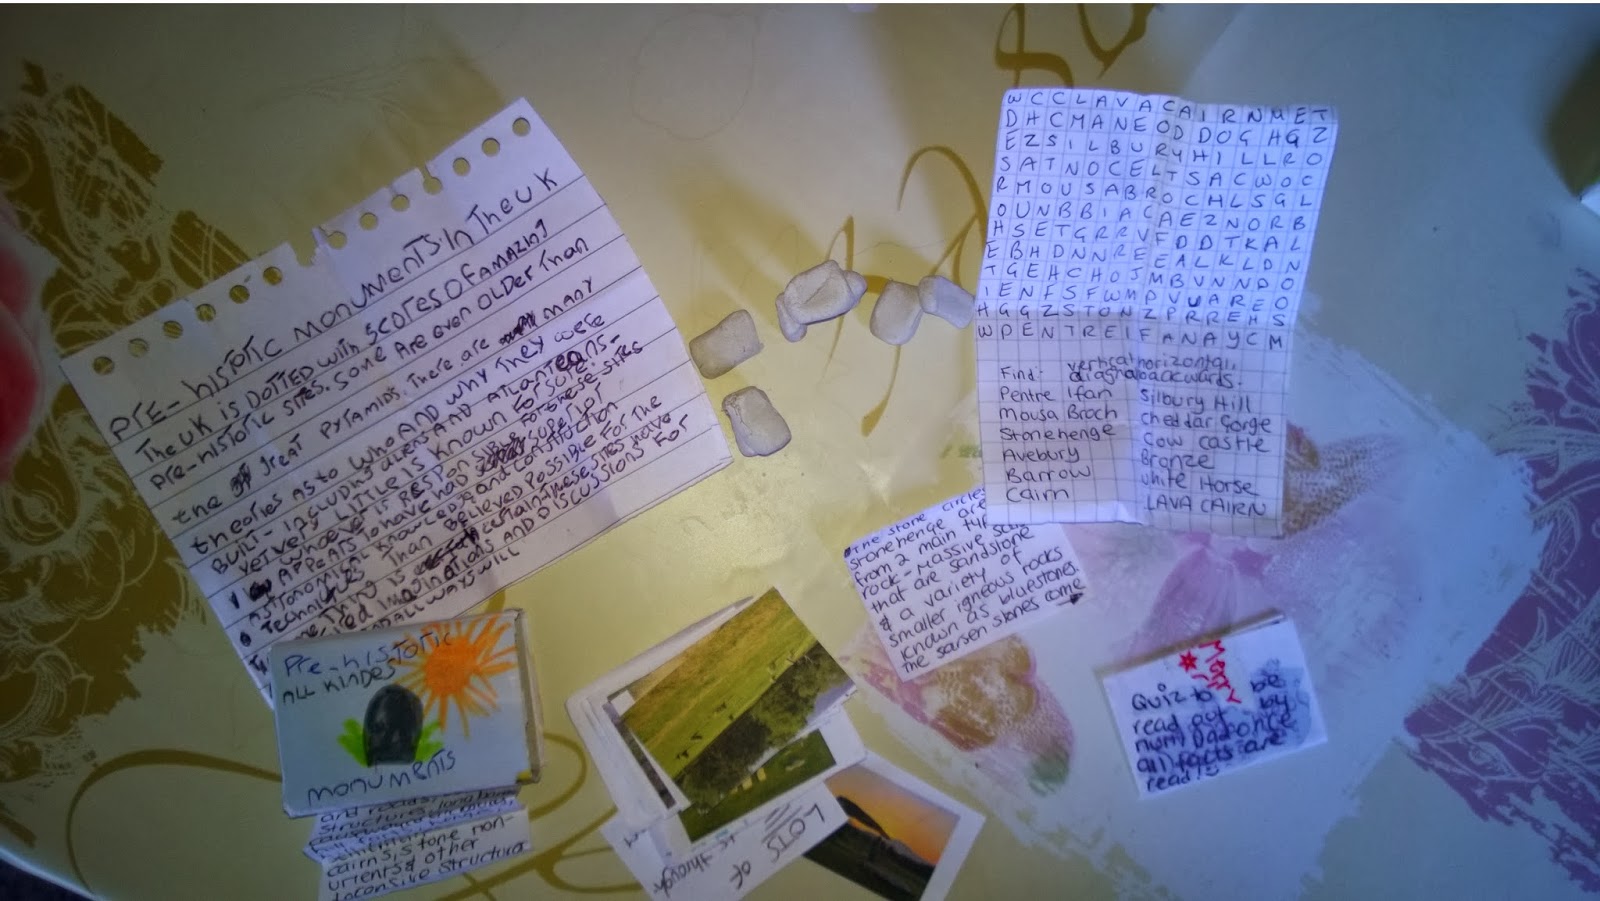 PRE-HISTORIC MONUMENTS IN THE UK
THE UK IS DOTTED WITH SCORES OF AMAZING
PRE-HISTORIC SITES. SOME ARE EVEN OLDER THAN
the great PYRAMIDS. There are MANY
theories AS TO WHO AND WHY THEY WERE
BUILT - INCLUDING ALIENS AND ATLANTEANS -
YET VERY LITTLE IS KNOWN FOR SURE.
WHOEVER IS RESPONSIBLE FOR THESE SITES
APPEARS TO HAVE HAD SUPERIOR
KNOWLEDGE AND CONSTRUCTION
TECHNIQUES THAN BELIEVED POSSIBLE FOR THE
TIME. THING IS CERTAIN THESE SITES HAVE
IMAGINATIONS AND DISCUSSIONS FOR
ALLWAYS WILL
W C C L A V A C A I R N M E T
D H C M A N E O D D O G H G Z
E Z S I L B U R Y H I L L R O
S A T N O C E L T S A C W O C
R M O U S A B R O C H L S G L
O U N B B I A C A E Z N O R B
H S E T G R R V F D D T K A L
E B H D N N R E E A L K L D N
T G E H C H O J M B V N N D O
I E N F S F W M P V U A R E O
H G G Z S T O N Z P R R E H S
W P E N T R E I F A N A Y C M
Find: vertical horizontal,
diagnal backwards.
Pentre Ifan Silbury Hill
Mousa Broch Cheddar Gorge
Stonehenge Cow Castle
Avebury Bronze
Barrow White Horse
Cairn LAVA CAIRN
The stone circles
Stonehenge are
from 2 main
rock - massive
that are sandstone
& a variety of
smaller igneous rocks
known as bluestones
the sarsen stones come →
Pre-historic
ALL KINDES
MONUMENTS
and roads,
cairns, stone mon-
uments & other
structure
LOTS
OF
through
MARY
Quiz to be
read out by
mum/Dad once
all facts are
read!!